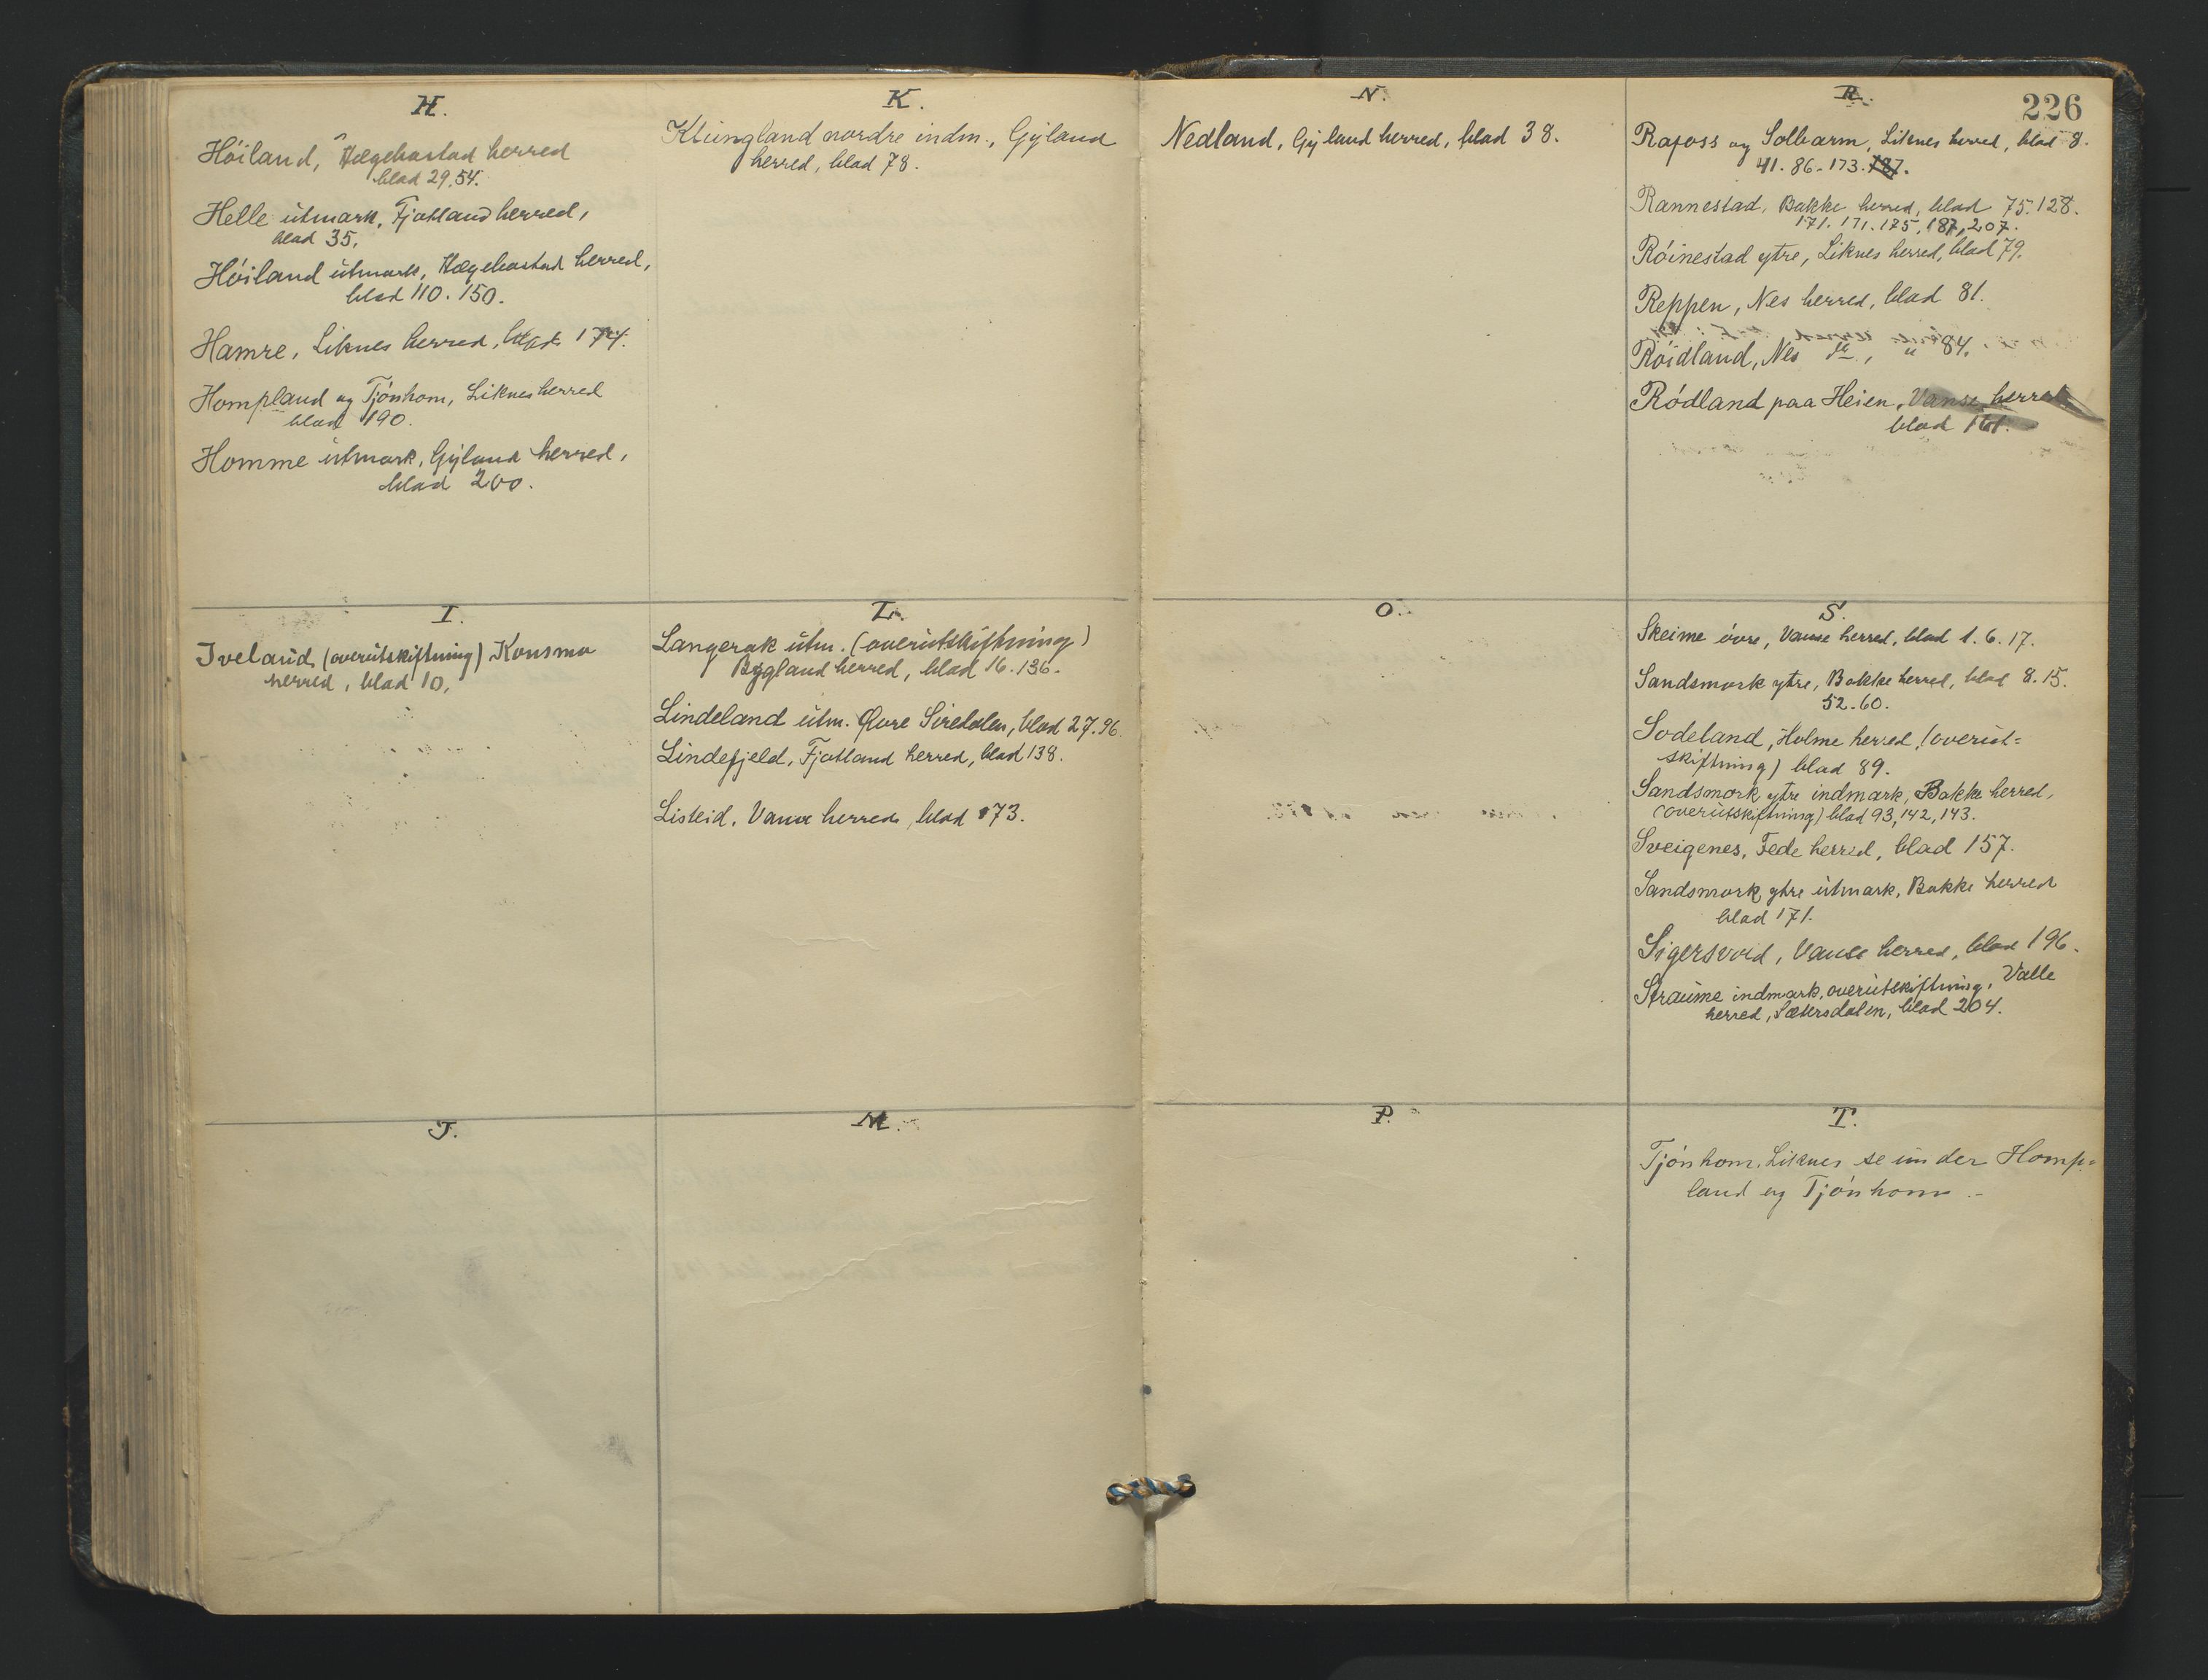 H.
Höiland, Hægebostad herred
blad 29, 54.
Helle utmark, Fjotland herred,
blad 35.
Höiland utmark, Hægebostad herred,
blad 110. 150.
Hamre, Liknes herred, blad 174.
Hompland og Tjönhom, Liknes herred
blad 190.
Homme utmark, Gyland herred,
blad 200.
I.
Iveland (overutskiftning) Konsmo
herred, blad 10.
J.
K.
Klungland nordre indm., Gyland
herred, blad 78.
L.
Langerak utm. (overutskiftning)
Bygland herred, blad 16. 136.
Lindeland utm. Övre Siredalen, blad 27. 96.
Lindefjeld, Fjotland herred, blad 138.
Listeid, Vanse herred, blad 173.
M.
N.
Nedland, Gyland herred, blad 38.
O.
P.
226
R.
Rafoss og Solbarm, Liknes herred, blad 8.
41. 86. 173. 187.
Rannestad, Bakke herred, blad 75. 128.
171. 171. 175, 187, 207.
Röinestad ytre, Liknes herred, blad 79.
Reppen, Nes herred, blad 81.
Röidland, Nes do., " 84.
Rödland paa Heien, Vanse herred
blad 161.
S.
Skeime övre, Vanse herred, blad 1. 6. 17.
Sandsmork ytre, Bakke herred, blad 8. 15.
52. 60.
Sodeland, Holme herred, (overut=
skiftning) blad 89.
Sandsmork ytre indmark, Bakke herred,
(overutskiftning) blad 93, 142, 143.
Sveigenes, Fede herred, blad 157.
Sandsmork ytre utmark, Bakke herred
blad 171.
Sigersvold, Vanse herred, blad 196.
Straume indmark, overutskiftning, Valle
herred, Sætersdalen, blad 204.
T.
Tjönhom, Liknes se under Homp=
land og Tjönhom.-